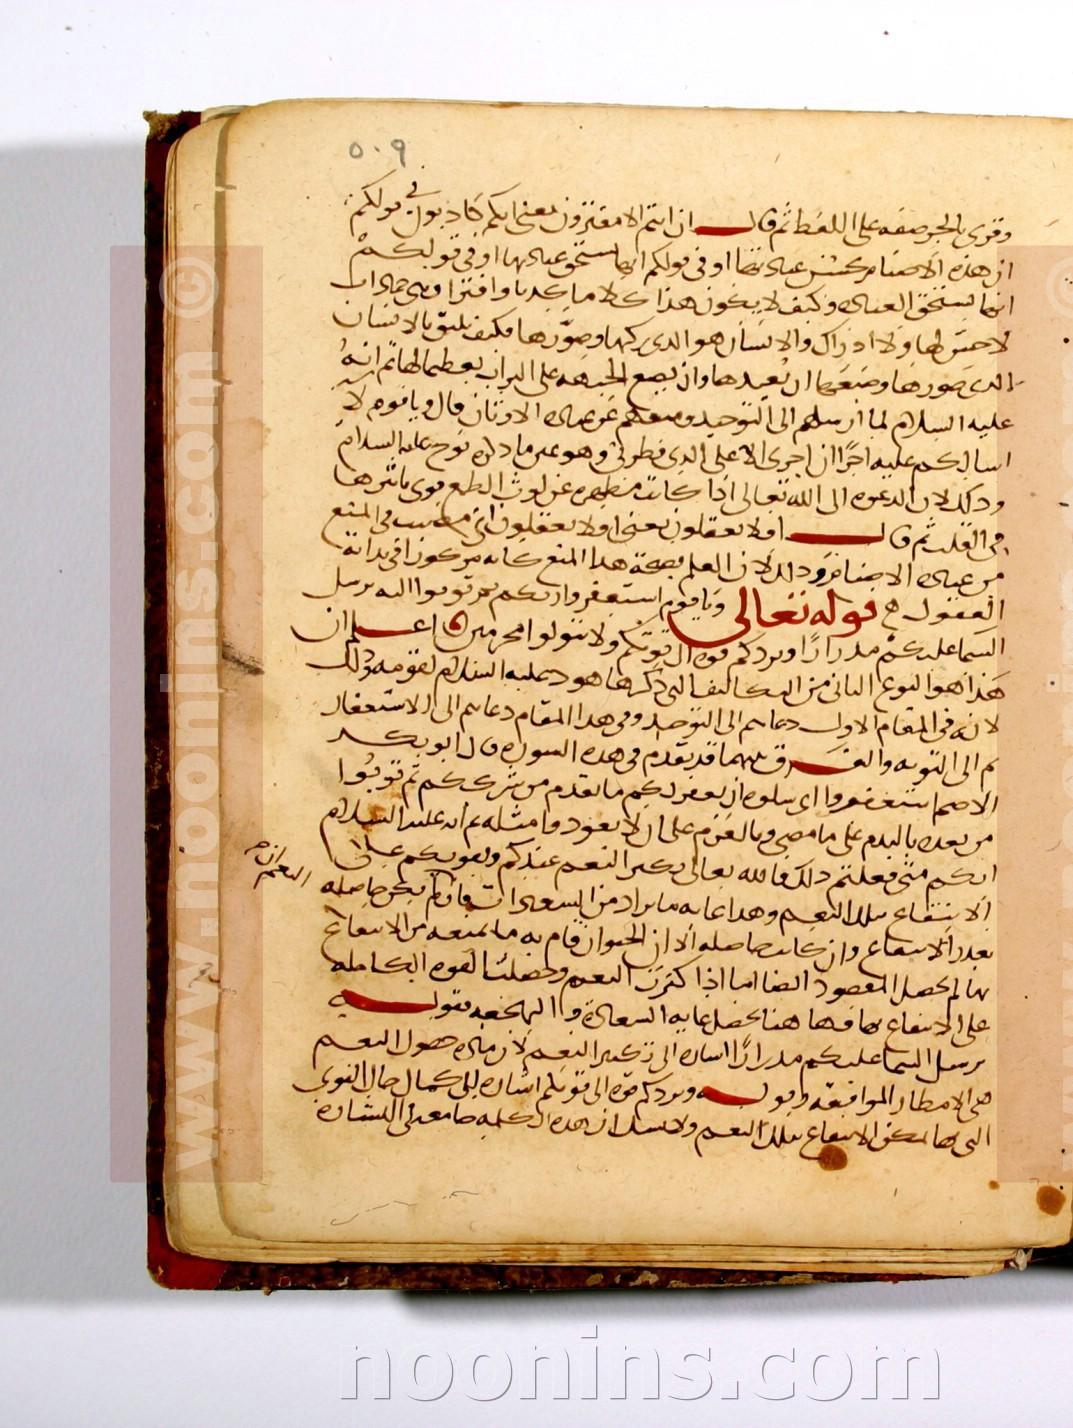 ٥٠٩
وقرئ بالجر صفه على اللفظ ثم قال ان انتم الا مفترون يعنى انكم كاذبون فى قولكم
ان هذه الاصنام تحسن عبادتها او فى قولكم انها تستحق عبادتها او فى قولكم
انها تستحق العباده وكيف لا يكون هذا كلاما كذبا وافترا وهى جمادات
لا حس لها ولا ادراك والانسان هو الذى ركبها وصورها فكيف يليق بالانسان
الذى صورها وصنعها ان يعبدها وان يضع الجبهه على التراب تعظيما لها ثم انه
عليه السلام لما ارشدهم الى التوحيد ومنعهم عن عباده الاوثان قال ويا قوم لا
اسالكم عليه اجرا ان اجرى الا على الذى فطرنى وهو عين ما ذكره نوح عليه السلام
وذلك لان الدعوه الى الله تعالى اذا كانت مطهره عن لوث الطمع قوى تاثيرها
فى القلب ثم قال افلا تعقلون يعنى افلا تعقلون انى مصيب فى المنع
من عباده الاصنام وذلك لان العلم بصحة هذا المنع كانه مركوز فى بداية
العقول قوله تعالى ويا قوم استغفروا ربكم ثم توبوا اليه يرسل
السما عليكم مدرارا ويزدكم قوه الى قوتكم ولا تتولوا مجرمين اعلم ان
هذا هو النوع الثانى من التكاليف التى ذكرها هود عليه السلام لقومه وذلك
لانه فى المقام الاول دعاهم الى التوحيد وفى هذا المقام دعاهم الى الاستغفار
ثم الى التوبه والفرق بينهما قد تقدم فى هذه السوره قال ابو بكر
الاصم استغفروا اى سلوه ان يغفر لكم ما تقدم من شرككم ثم توبوا
من بعده بالندم على ما مضى وبالعزم على ان لا تعودوا مثله ثم انه عليه السلام
انكم متى فعلتم ذلك فالله تعالى يكثر النعم عندكم ويقويكم على
الانتفاع بتلك النعم وهذا غايه ما يراد من السعادات فان لم يكن حاصله
تعذر الانتفاع وان كانت حاصله الا ان الحيوان قام به ما يمنعه من الانتفاع
بها لم يحصل المقصود ايضا اما اذا كثرت النعم وحصلت القوه الكامله
على الانتفاع بها فها هنا يحصل غايه السعادة والبهجه فقوله
يرسل السما عليكم مدرارا اشاره الى تكثير النعم لان ماده حصول النعم
هى الامطار الموافقه وقوله ويزدكم قوه الى قوتكم اشاره الى كمال حال القوى
التى بها يمكن الانتفاع بتلك النعم ولا شك ان هذه الكلمه جامعه فى البشاره
www.noonins.com ©
noonins.com